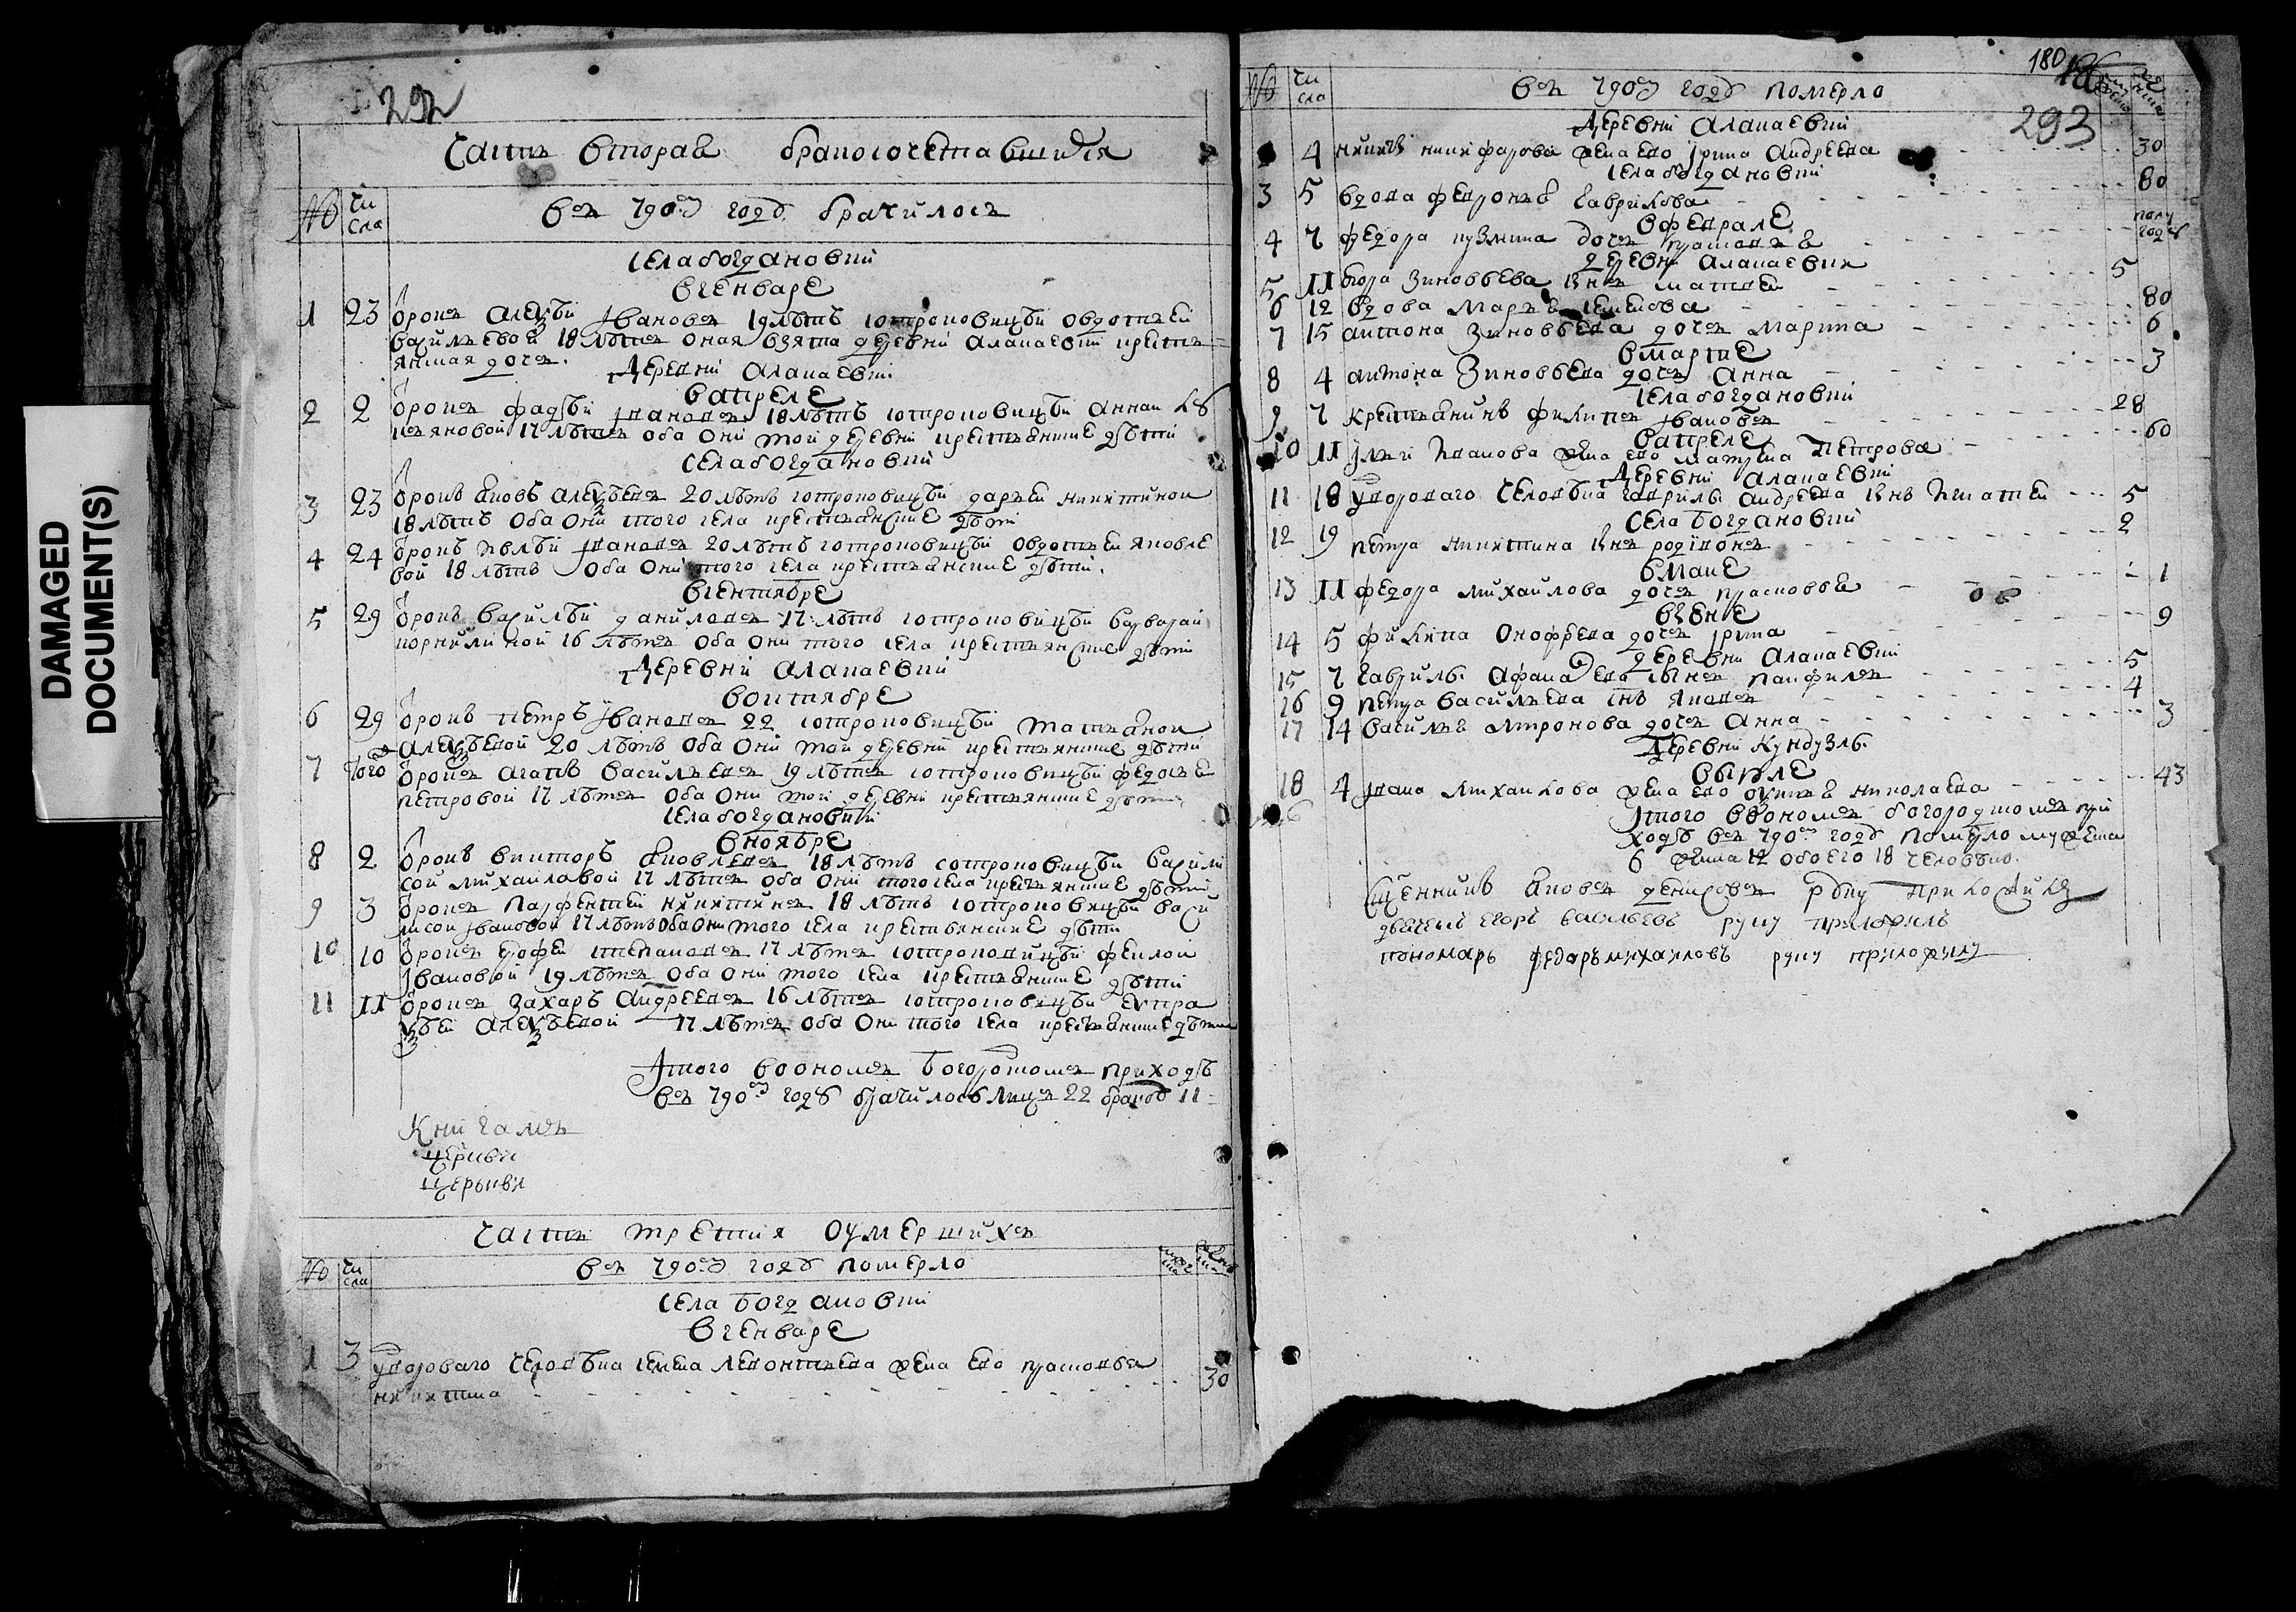 DAMAGED
DOCUMENT(S)
292
Часть вторая бракосочетавшихся
№ чи сла въ 790м годѣ бра́чилось
села богдановки
в генваре
1 23 отрокъ алексѣй ивановъ 19 лѣтъ сотроковицѣй овдотьей
васильевой 18 лѣтъ оная взята деревни алапаевки кресть
янская дочь.
Деревни Алапаевки
в апреле
2 2 отрокъ фадѣй ивановъ 18 лѣтъ сотроковицѣй анной лу
кьяновой 17 лѣтъ оба они той деревни крестьянские дѣти
села богдановки
3 23 отрокъ яковъ алексѣевъ 20 лѣтъ сотроковицѣй дарьей никитиной
18 лѣтъ оба они того села крестьянские дѣти
4 24 отрокъ ивановъ 20 лѣтъ сотроковицѣй овдотьей яковле
вой 18 лѣтъ оба они того села крестьянские дѣти.
в сентябре
5 29 отрокъ василѣй даниловъ 17 лѣтъ сотроковицѣй варварай
корнилиной 16 лѣтъ оба они того села крестьянские дѣти
Деревни алапаевки
в октябре
6 29 отрокъ петръ ивановъ 22 сотроковицѣй татьяной
алексѣевой 20 лѣтъ оба они той деревни крестьянские дѣти
7 того отрокъ агапъ васильевъ 19 лѣтъ сотроковицѣй федосьей
петровой 17 лѣтъ оба они той деревни крестьянские дѣти
села богдановки
в ноябре
8 2 отрокъ викторъ яковлевъ 18 лѣтъ сотроковицѣй васили
сой михайлавой 17 лѣтъ оба они того села крестьянские дѣти
9 3 отрокъ парфентей никитинъ 18 лѣтъ сотроковицѣй васи
лисой ивановой 17 лѣтъ оба они того села крестьянские дѣти
10 10 отрокъ степановъ 17 лѣтъ сотроковицѣй феклой
ивановой 19 лѣтъ оба они того села крестьянские дѣти
11 11 отрокъ захаръ андреевъ 16 лѣтъ сотроковицѣй евпра
ксѣей алексѣевой 17 лѣтъ оба они того села крестьянские дѣти
итого в ономъ богородскомъ приходѣ
въ 790м годѣ брачилось лицъ 22 браковъ 11
Книгамъ
церкви
церькви
Часть третия оумершихъ
№ чи сла въ 790м годѣ померло
села богдановки
в генваре
1 3 удороваго человѣка семена левонтьева жена ево прасковья
никитина 30
180
293
№ чи сла въ 790м годѣ померло
Деревни алапаевки
4 никифорова жена ево ирина андреева 30
села богдановки
3 5 вдова феврон гаврилова 80
в феврале
4 7 федора кузмина дочь прасковья полу года
деревни алапаевки
5 11 егора зиновьева сынъ матвей 5
6 12 вдова марья семенова 80
7 15 антона зиновьева дочь марина 6
в марте
8 4 антона зиновьева дочь анна 3
села богдановки
9 7 крестьянинъ филипъ ивановъ 28
в апреле
10 11 ильи иванова жена ево матрена петрова 60
Деревни алапаевки
11 18 удороваго человѣка гаврилы андреева сынъ игнатей 5
села богдановки
12 19 петра никитина сынъ родионъ 2
в маие
13 11 федора михайлова дочь прасковья 1
в юне
14 5 филипа онофреева дочь ирина 9
деревни алапаевки
15 7 гаврилы афанасева сынъ панфилъ 5
16 9 петра васильева сынъ яковъ 4
17 14 василья миронова дочь анна 3
Деревни Кундузлы
в июле
18 4 ивана михайлова жена ево николаева 43
итого в ономъ богородскомъ при
ходѣ въ 790м годѣ померло мужеска
6 женска 12 обоего 18 человѣкъ.
Священникъ яковъ денисовъ руку приложилъ
дьячекъ егоръ васильевъ руку приложилъ
пономарь федаръ михаиловъ руку приложилъ